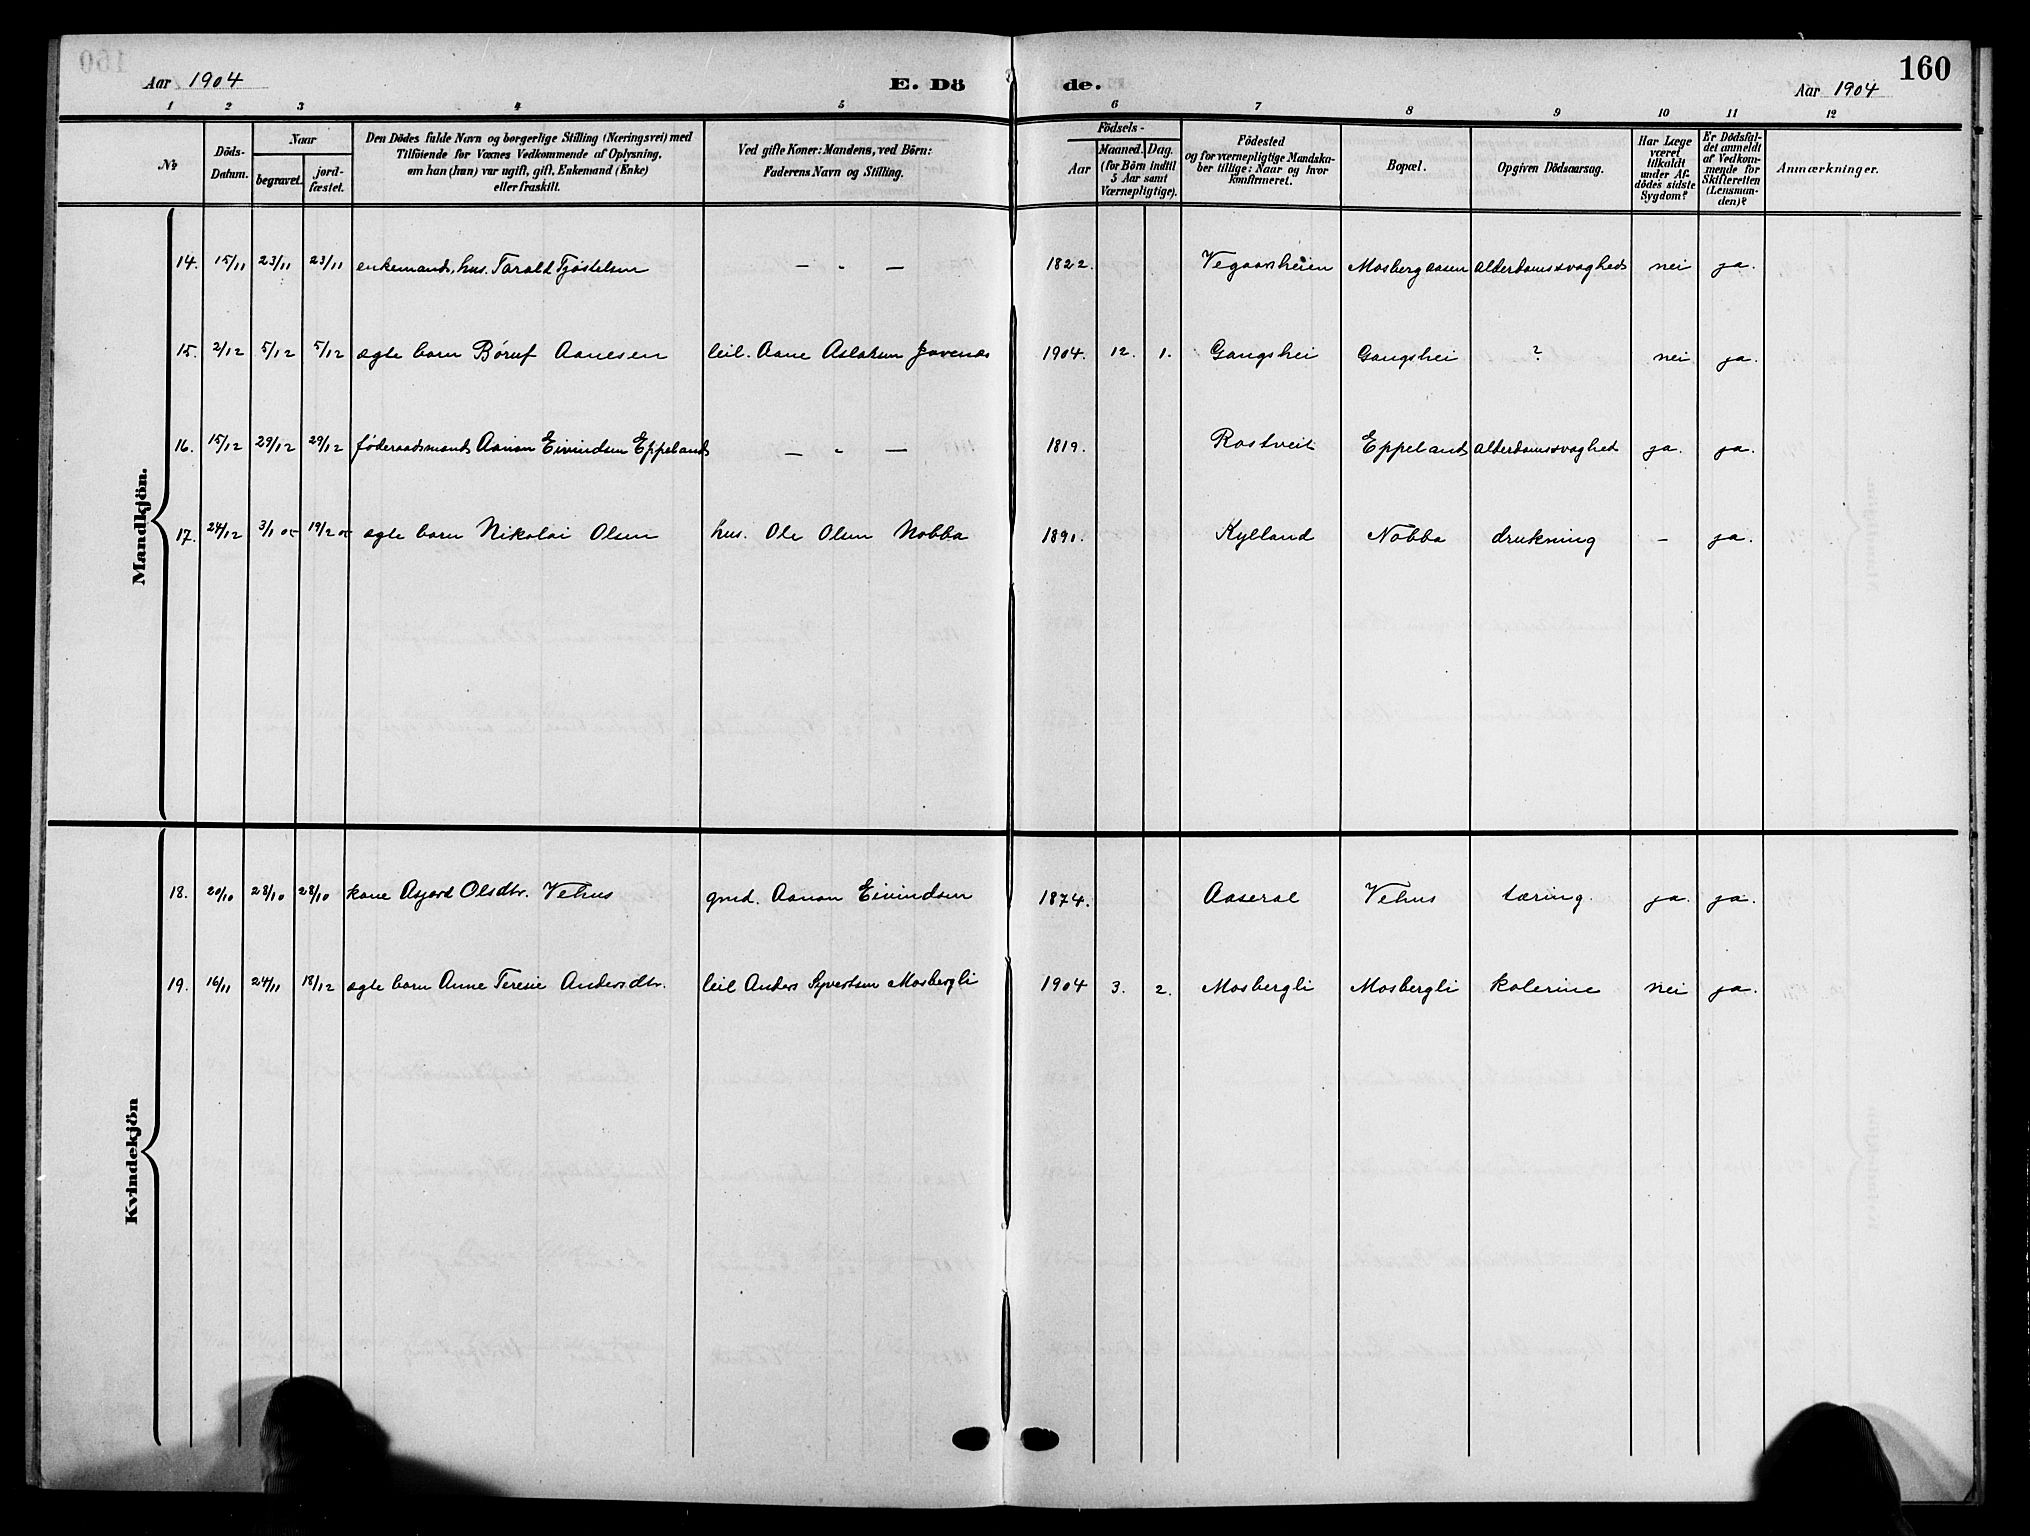 160
Aar 1904
E. Dö de.
Aar 1904
1 2 3 4 5 6 7 8 9 10 11 12
No
Döds-Datum.
Naar
begravet.
jord-fæstet.
Den Dödes fulde Navn og borgerlige Stilling (Næringsvei) med
Tilföiende for Voxnes Vedkommende af Oplysning,
om han (han) var ugift, gift, Enkemand (Enke)
eller fraskilt.
Ved gifte Koner: Mandens, ved Börn:
Faderens Navn og Stilling.
Födsels-
Aar
Maaned. Dag.
(for Börn indtil
5 Aar samt
Værnepligtige).
Födested
og for værnepligtige Mandska-
ber tillige: Naar og hvor
Konfirmeret.
Bopæl.
Opgiven Dödsaarsag.
Har Læge
været
tilkaldt
under Af-
dödes sidste
Sygdom?
Er Dödsfal-
det anmeldt
af Vedkom-
mende for
Skifteretten
(Lensman-
den)?
Anmærkninger.
Mandkjön.
14. 15/11 23/11 23/11 enkemand, hus. Tarald Tjöstelsen — " — 1822. Vegaarsheien Mosbergaasen alderdomssvaghed nei ja.
15. 2/12 5/12 5/12 ægte barn Böruf Aanesen leil. Aane Aslaksen 1904. 12. 1. Gangshei Gangshei ? nei ja.
16. 15/12 29/12 29/12 föderaadsmand Aanon Eivindsen Eppeland — " — 1819. Rostveit Eppeland alderdomssvaghed ja. ja.
17. 24/12 3/1 05 19/2 05 ægte barn Nikolai Olsen hus. Ole Olsen Nobba 1891. Kylland Nobba drukning – ja.
Kvindekjön
18. 20/10 28/10 28/10 kone Asjerd Olsdtr. Vehus gmd. Aanon Eivindsen 1874. Aaseral Vehus tæring. ja. ja.
19. 16/11 24/11 18/12 ægte barn Anne Teresie Andersdtr. leil Anders Syvertsen Mosbergli 1904 3. 2. Mosbergli Mosbergli kolerine nei ja.